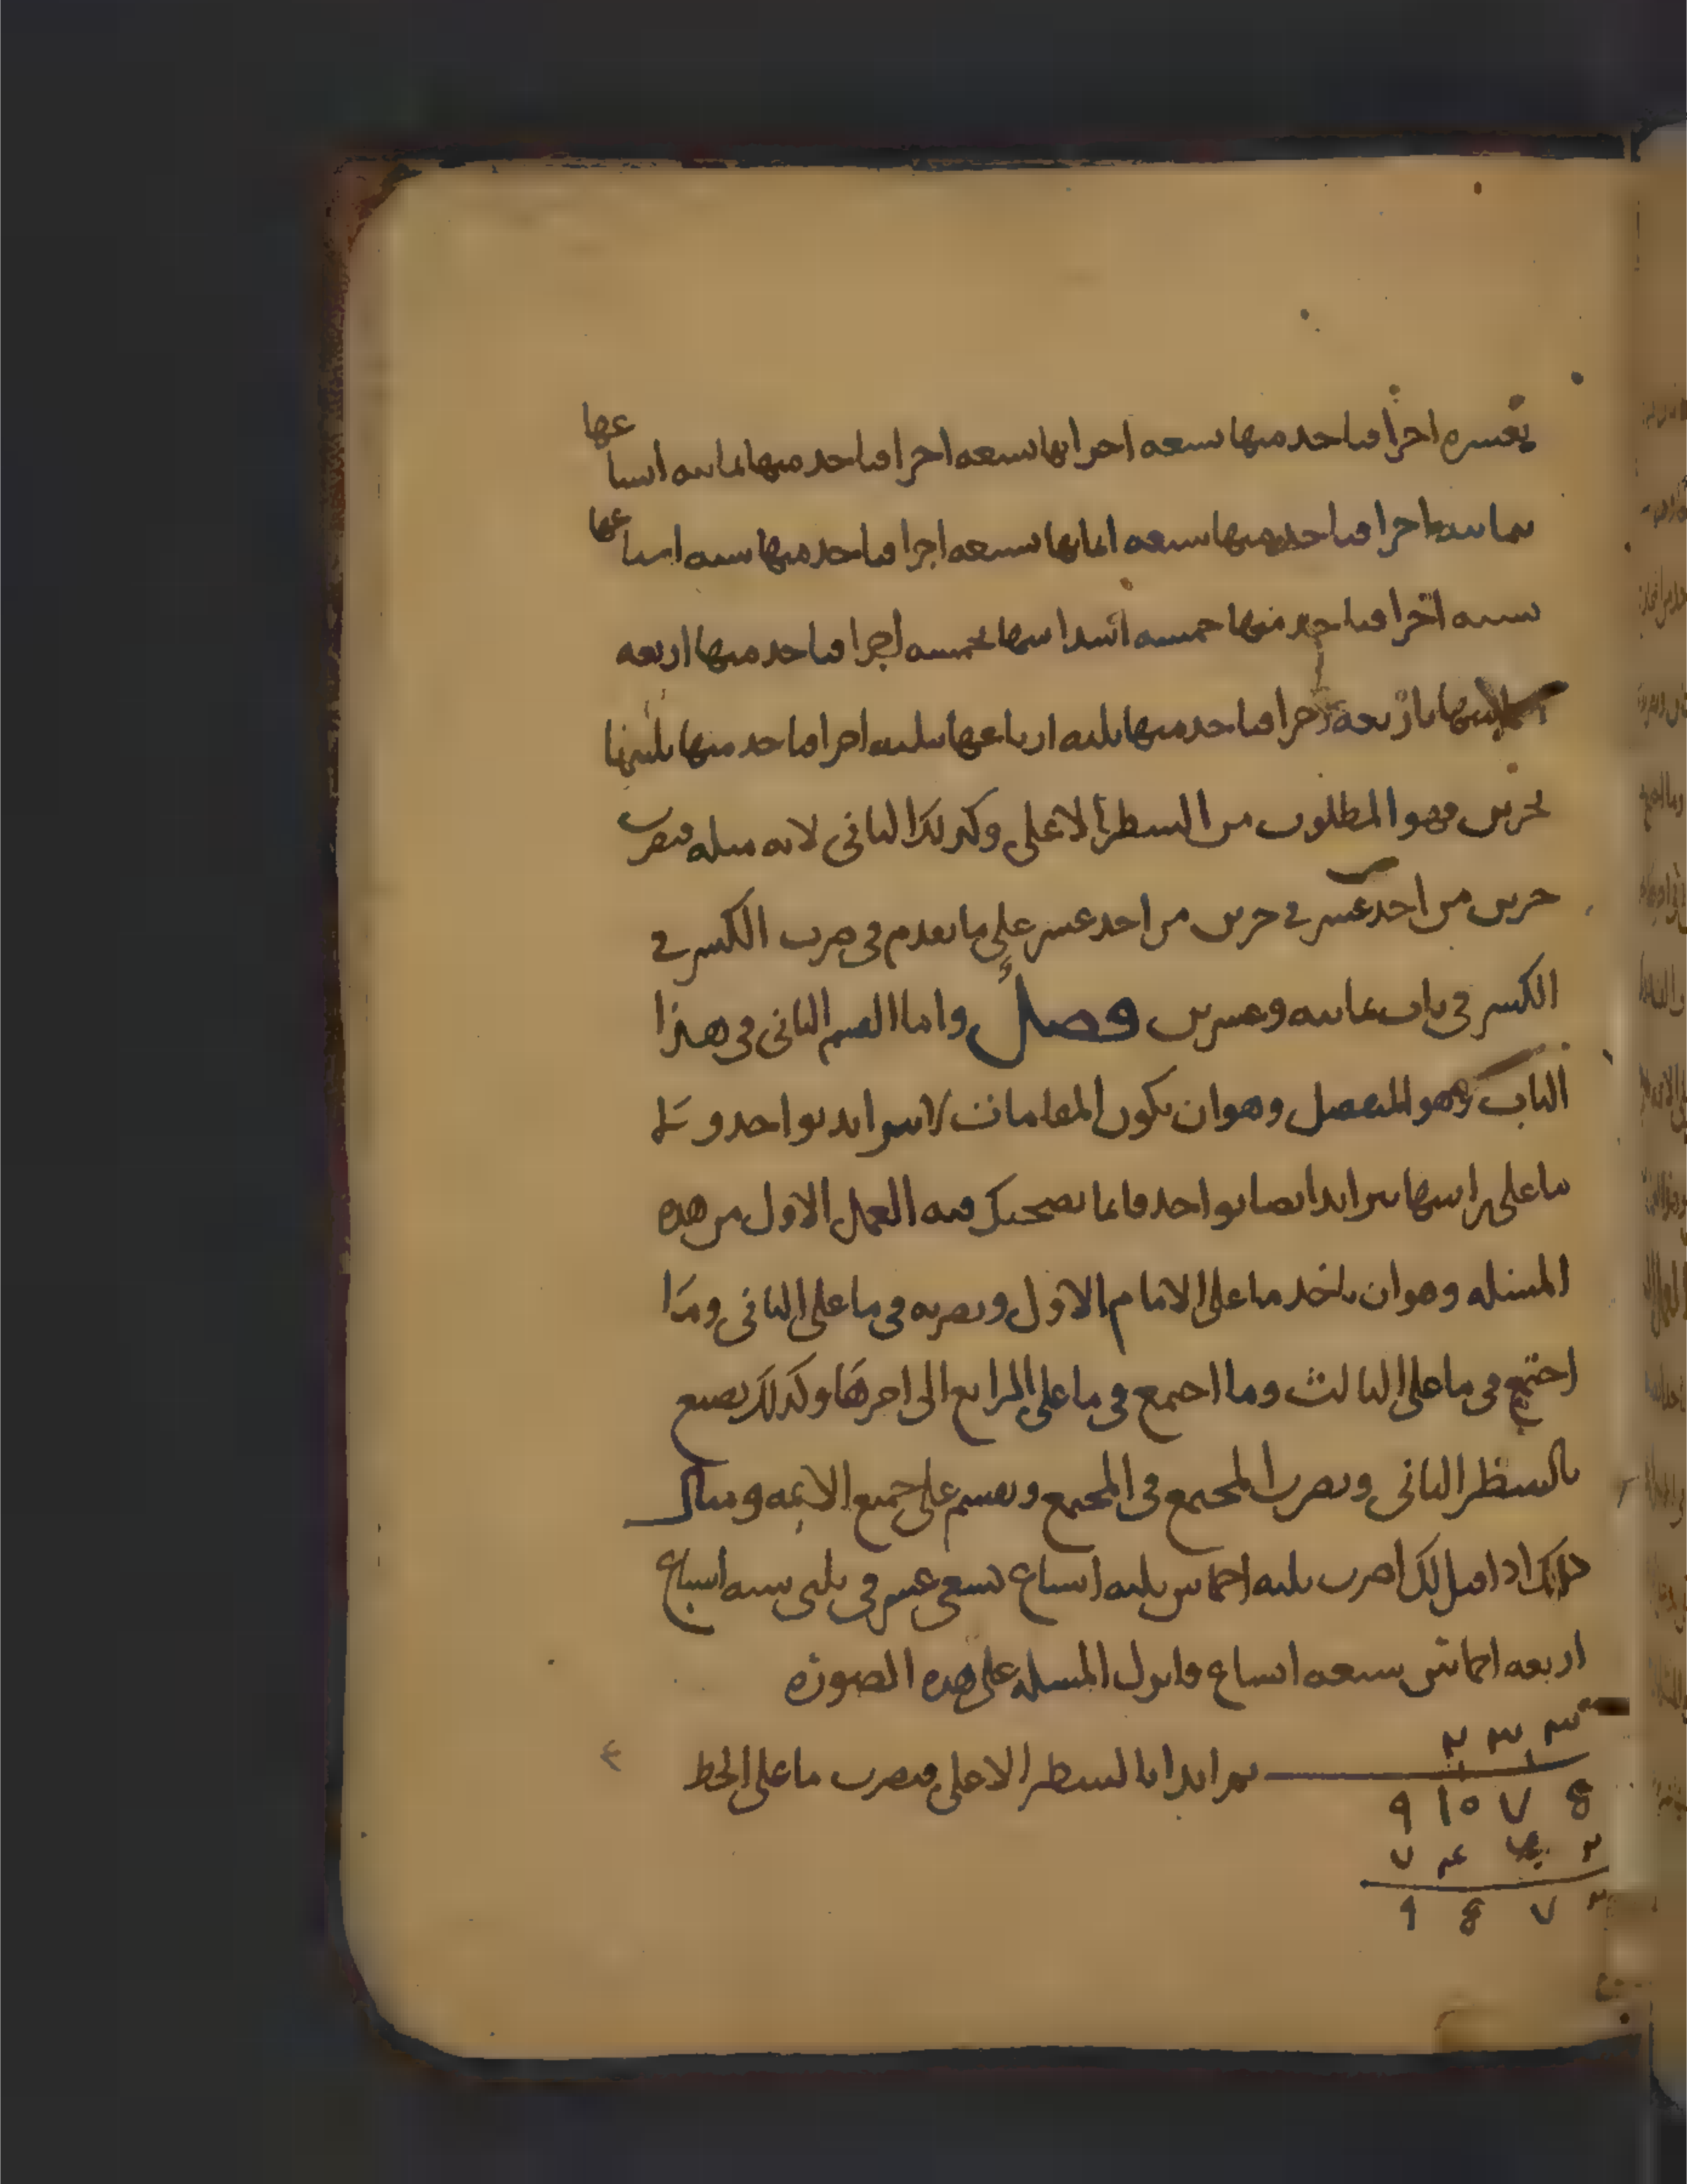 بعشره اجزا فتاخد منها تسعه اعشارها تسعه اجزا فتاخد منها ثمانيه اتساعها
ثمانيه اجزا فتاخد منها سبعه اثمانها سبعه اجزا فتاخد منها سته اسباعها
سته اجزا فتاخد منها خمسه اسداسها خمسه اجزا فتاخد منها اربعه
اخماسها اربعه اجزا فتاخد منها ثلثه ارباعها ثلثه اجزا فتاخد منها ثلثيها
جزين فهو المطلوب من السطر الاعلى وكذلك الثانى لانه مثله فتضرب
جزين من احد عشر في جزين من احد عشر على ما تقدم فى ضرب الكسر في
الكسر فى باب ثمانيه وعشرين فصل واما القسم الثانى فى هذا
الباب وهو المنفصل وهو ان يكون المقامات لا تتزايد بواحد و لا
ما على راسها يتزايد ايضا بواحد فانما يصح لك فيه العمل الاول من هذه
المسئله وهو ان تاخد ما على الامام الاول وتضربه فى ما على الثانى وما
اجتمع فى ما على الثالث وما اجتمع فى ما على الرابع الى اخرها وكذلك تصنع
بالسطر الثانى وتضرب المجتمع فى المجتمع وتقسم على جميع الايمه ومثال
ذلك اذا قيل لك اضرب ثلثه اخماس ثلثه اسباع تسعى عشر فى ثلثى سته اسباع
اربعه اخماس سبعه اتساع فانزل المسله على هذه الصوره
ثم ابدا بالسطر الاعلى فتضرب ما على الخط